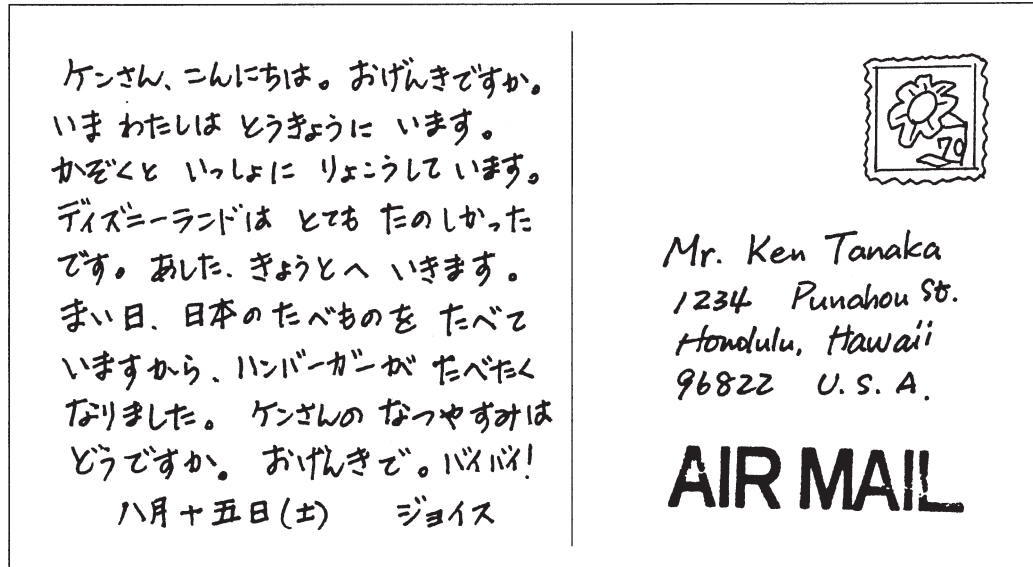 ケンさん、こんにちは。おげんきですか。
いま わたしは とうきょうに います。
かぞくと いっしょに りょこうして います。
ディズニーランドは とても たのしかった
です。あした、きょうとへ いきます。
まい日、日本のたべものを たべて
いますから、ハンバーガーが たべたく
なりました。 ケンさんの なつやすみは
どうですか。 おげんきで。バイバイ!
八月十五日(土) ジョイス
70
Mr. Ken Tanaka
1234 Punahou St.
Honolulu, Hawaii
96822 U.S.A.
AIR MAIL